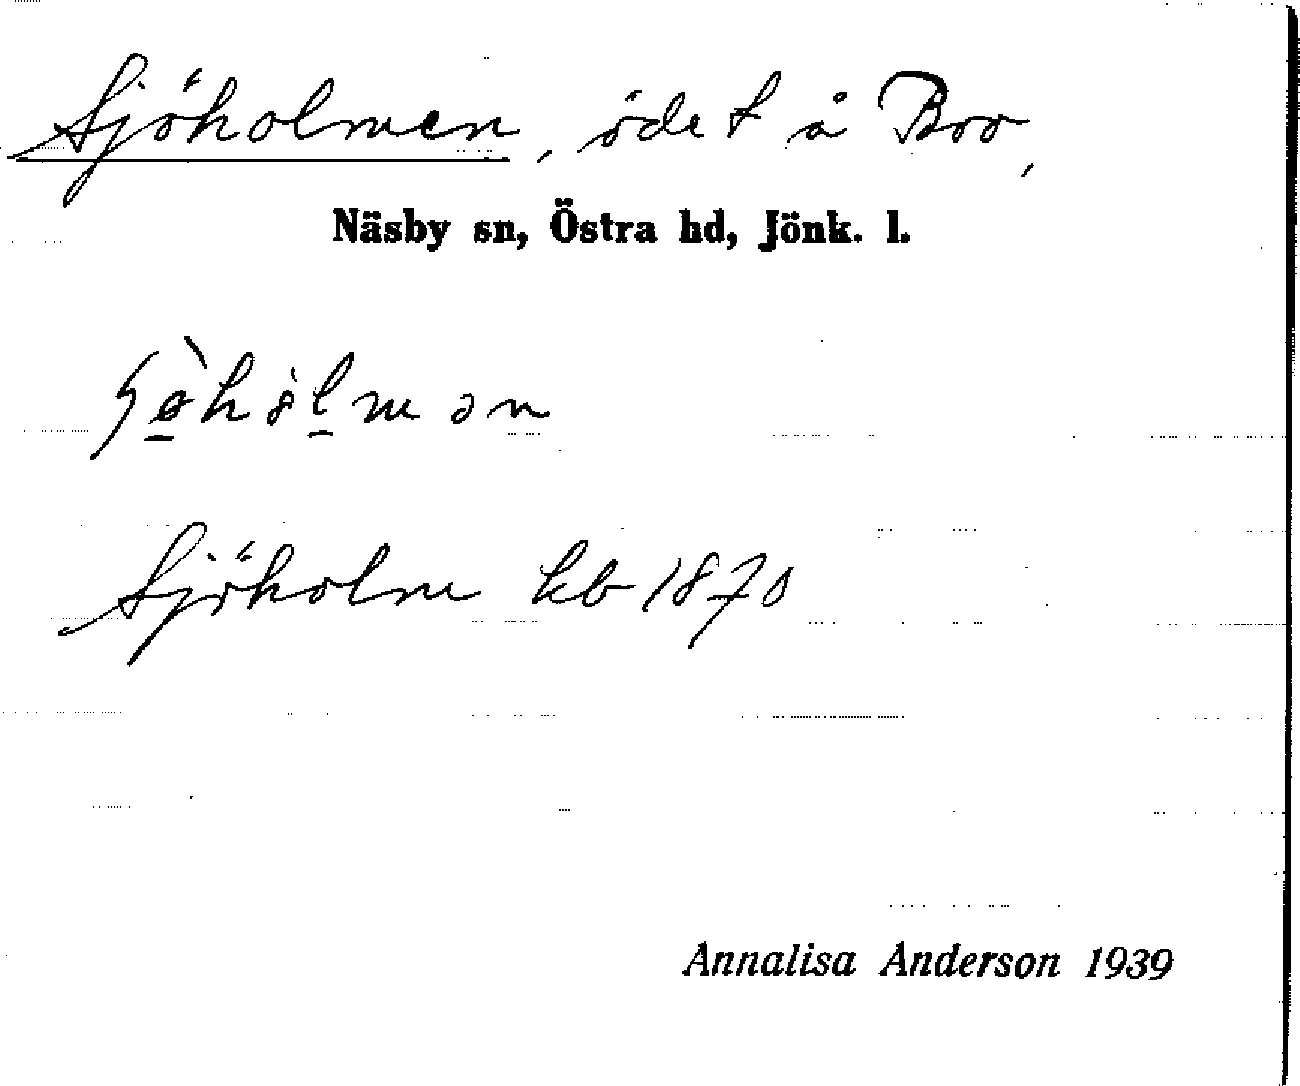 Sjöholmen, ödet å Boo,
Näsby sn, Östra hd, Jönk. l.
Sjöholm kb 1870
Annalisa Anderson 1939